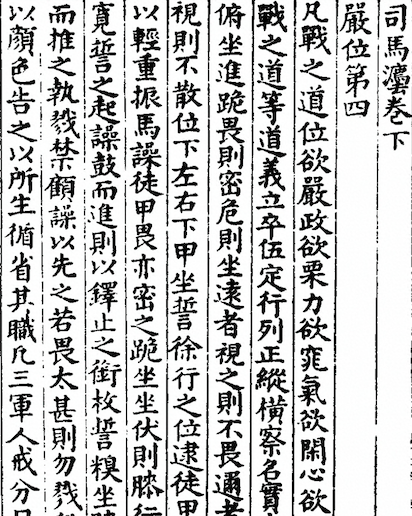 司馬灋卷下
嚴位第四
凡戰之道位欲嚴政欲栗力欲窕氣欲閑心欲
戰之道等道義立卒伍定行列正縱橫察名實
俯坐進跪畏則密危則坐遠者視之則不畏邇者
視則不散位下左右下甲坐誓徐行之位逮徒甲
以輕重振馬譟徒甲畏亦密之跪坐坐伏則膝行
寬誓之起譟鼓而進則以鐸止之銜枚誓糗坐
而推之執戮禁顧譟以先之若畏太甚則勿戮
以顏色告之以所生循省其職凡三軍人戒分